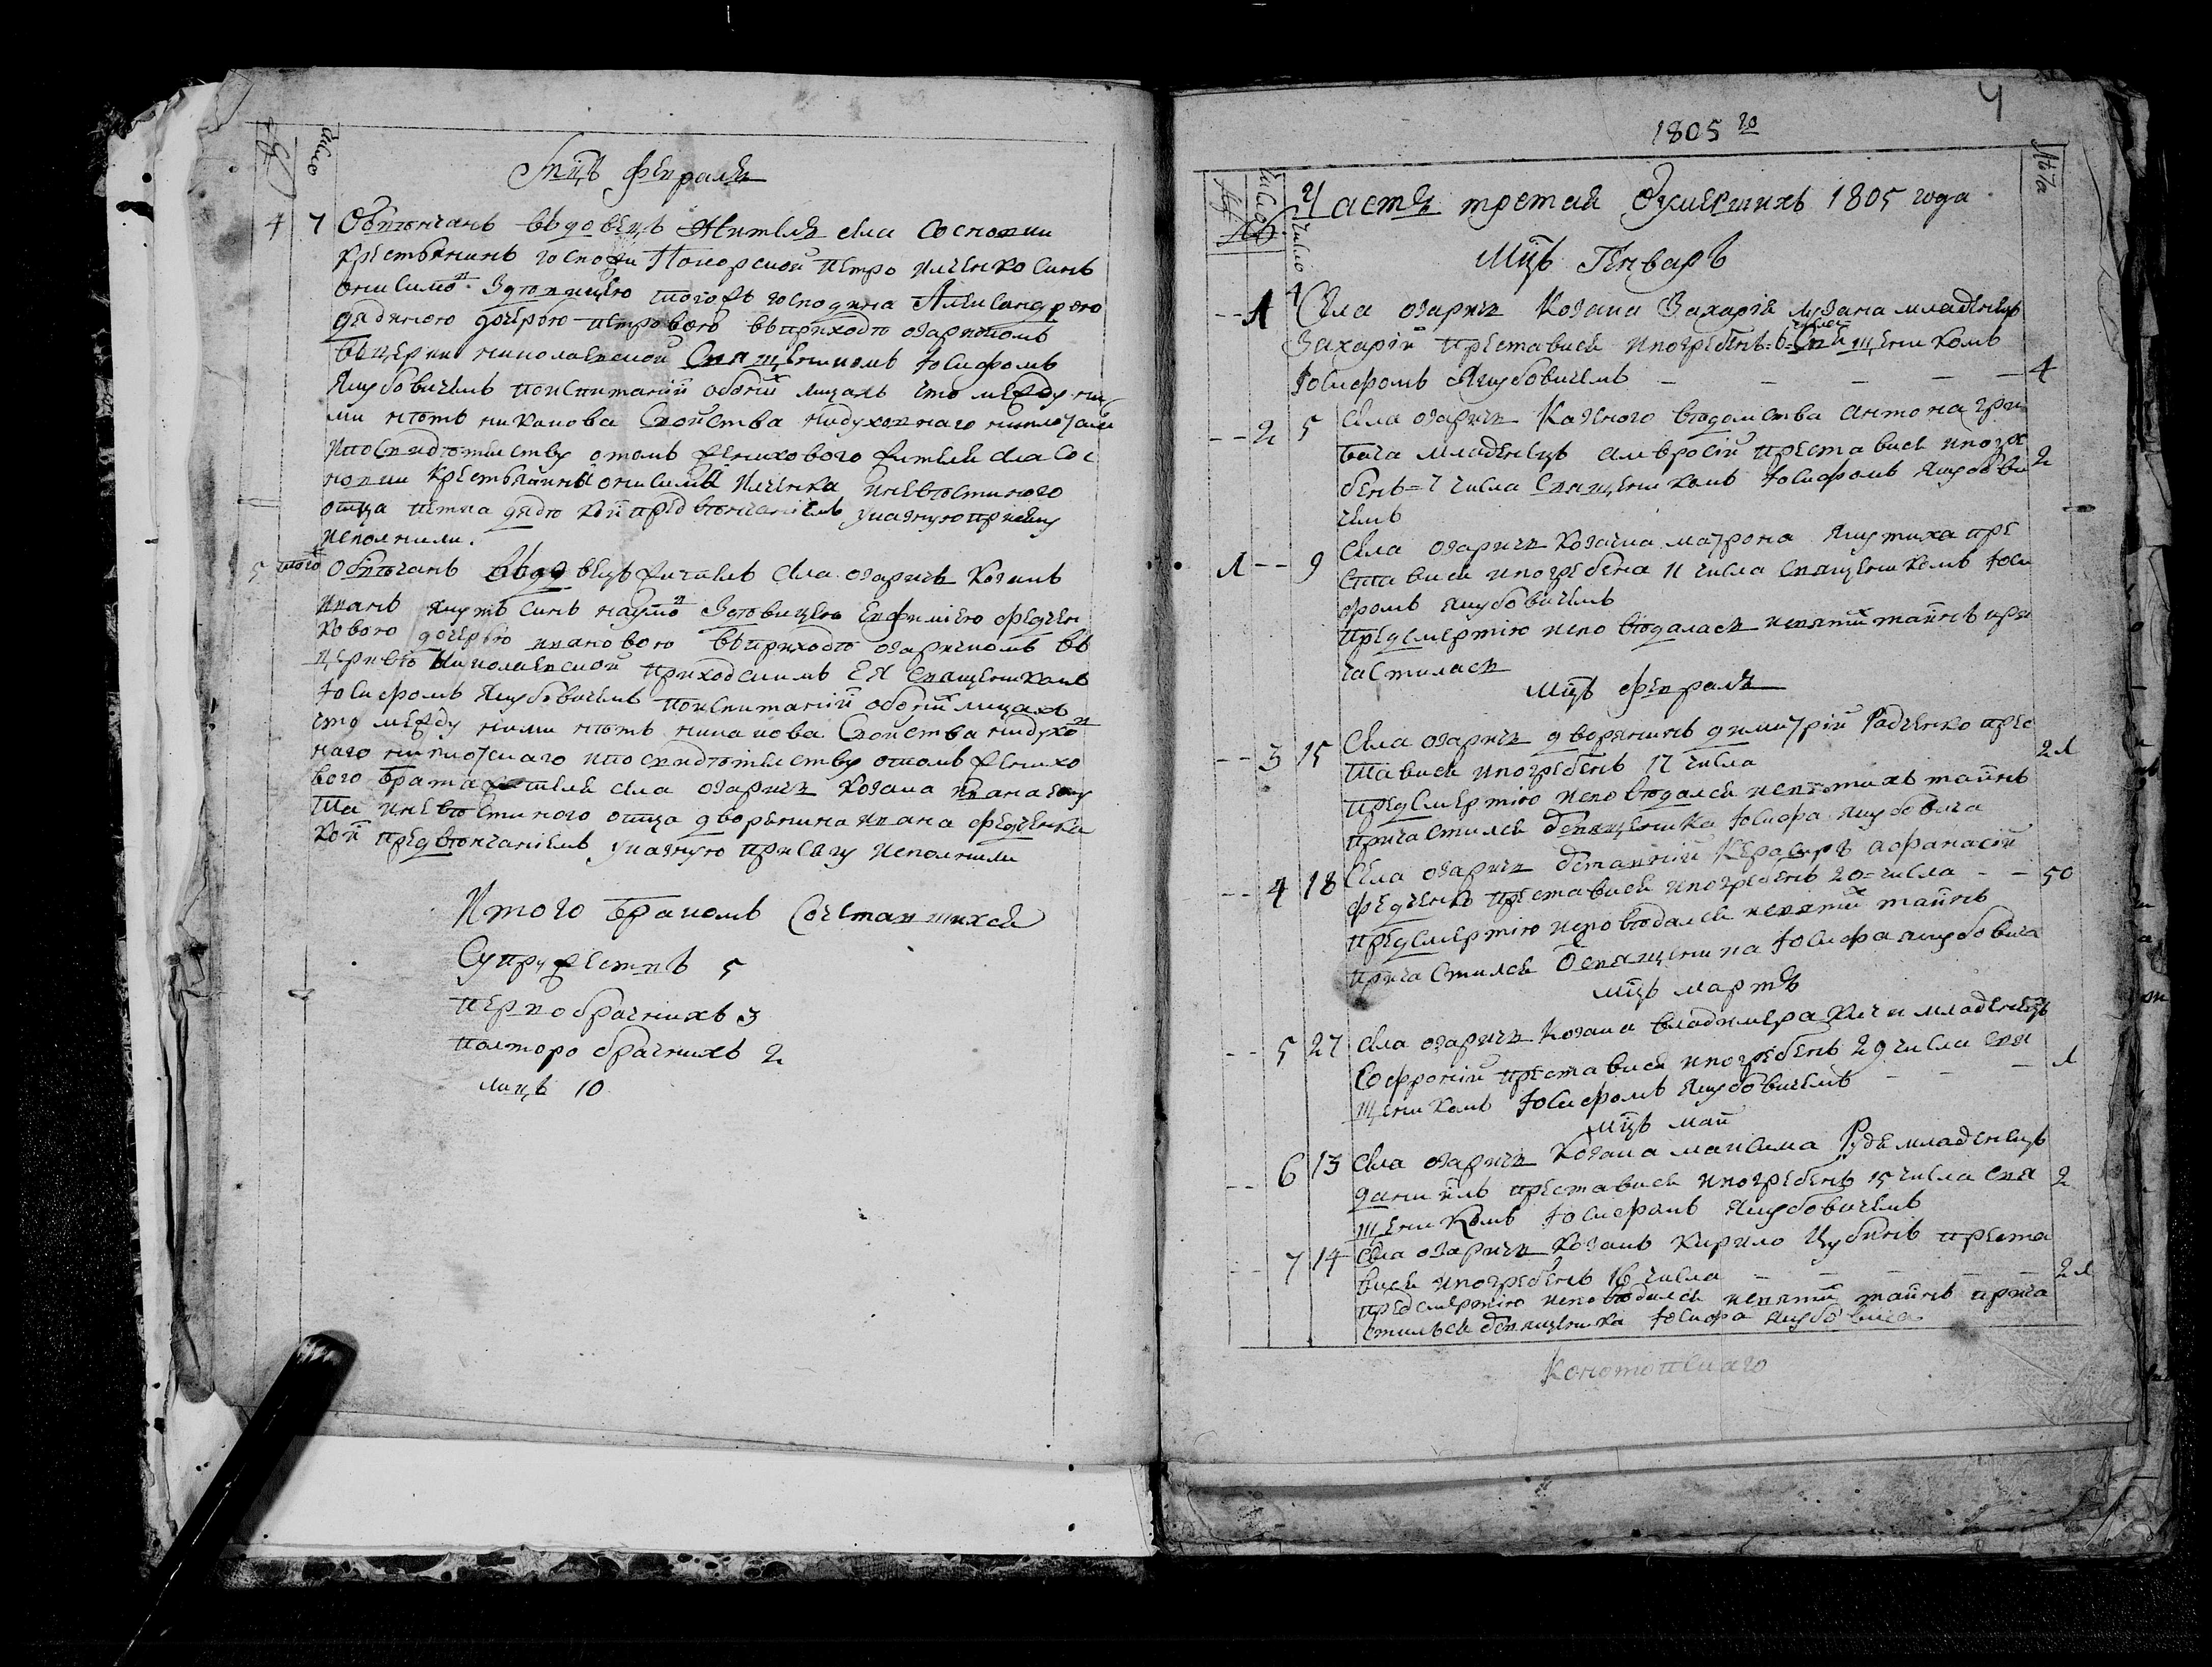 Число
Мцъ февраля
4 7 Обвѣнчанъ вьдовецъ житель села сосновки
крестьянинъ господи Поморской петро илченко синъ
онисимов здѣвицею тогожъ господина Александрою
дядиною дочерью петровою въприходѣ озаричкомъ
въцеркви николаевской Священникомъ Іосифомъ
Якубовичемъ поиспитаніи обоихъ лицахъ что между ни
ми нѣтъ никакова Свойства нидуховнаго ниплотска
ипосвидѣтелству отомъ женихового жителя села сос
новки крестьянина онисима илченка иневѣстиного
отца петра дядѣ кои предвѣнчаніемъ указную присягу
исполнили.
5 того Обвѣнчанъ вьдовецъ житель села озаричъ козакъ
иванъ якутъ синъ наумов здѣвицею евфиміею федчен
ковою дочерью ивановою въприходѣ озаричкомъ въ
церквѣ Николаевской приходскимъ ея священникомъ
Іосифомъ Якубовичемъ поиспитаніи обоихъ лицахъ
что между ними нѣтъ никакова Свойства нидухов
наго ниплотскаго ипосвидѣтелству отомъ женихо
вого брата жителя села озаричъ козака ивана яку
та иневѣстиного отца дворянина ивана федченка
кои предвѣнчаніемъ указную присягу исполнили
Итого бракомъ Сочетавшихся
Супружествъ 5
первобрачнихъ 3
полторобрачнихъ 2
лицъ 10
4
1805 го
Число
Лѣта
Часть третая Оумершихъ 1805 года
Мцъ Генварь
1 1 Села озаричъ Козака Захарія лузана младенецъ
Захарій преставися ипогребенъ 6 числа Священникомъ
Іосифомъ Якубовичемъ 4
2 5 Села озаричъ Казного вѣдомства антона гри
бача младенецъ амвросій преставися ипогре 2
бенъ 7 числа Священникомъ Іосифомъ Якубови
чемъ
1 9 Села озаричъ козачка матрона якутиха пре
ставися ипогребена 11 числа священникомъ Іоси
фомъ Якубовичемъ
предсмертію исповѣдалася исвятихъ таинъ при
частилася
Мцъ февраль
3 15 Села озаричъ дворянинъ димитрій Радченко прес
тависи ипогребенъ 17 числа 21
предсмертію исповѣдался исвятихъ таинъ
причастился усвященика Іосифа Якубовича
4 18 Села озаричъ отавній афанасій
федченко преставися ипогребенъ 20 числа 50
предсмертію исповѣдался исвятихъ таинъ
причастился Освященика Іосифа якубовича
Мцъ мартъ
5 27 Села озаричъ козака владимера младенецъ
Софроній преставися ипогребенъ 29 числа свя
щенникомъ Іосифомъ Якубовичемъ 1
Мцъ май
6 13 Села озаричъ козака максима Рудя младенецъ
даніилъ преставися ипогребенъ 15 числа свя 2
щенникомъ Іосифомъ Якубовичемъ
7 14 Села озаричъ козакъ Кирило Цубинъ преста
вися ипогребенъ 16 числа 21
предсмертію исповѣдался исвятихъ таинъ прича
стилься освященика Іосифа Якубовича
Конотопскаго